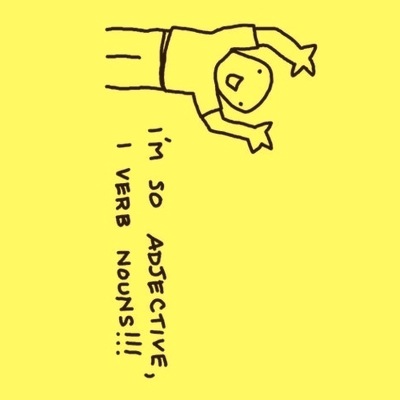 I'M SO ADJECTIVE,
I VERB NOUNS!!!